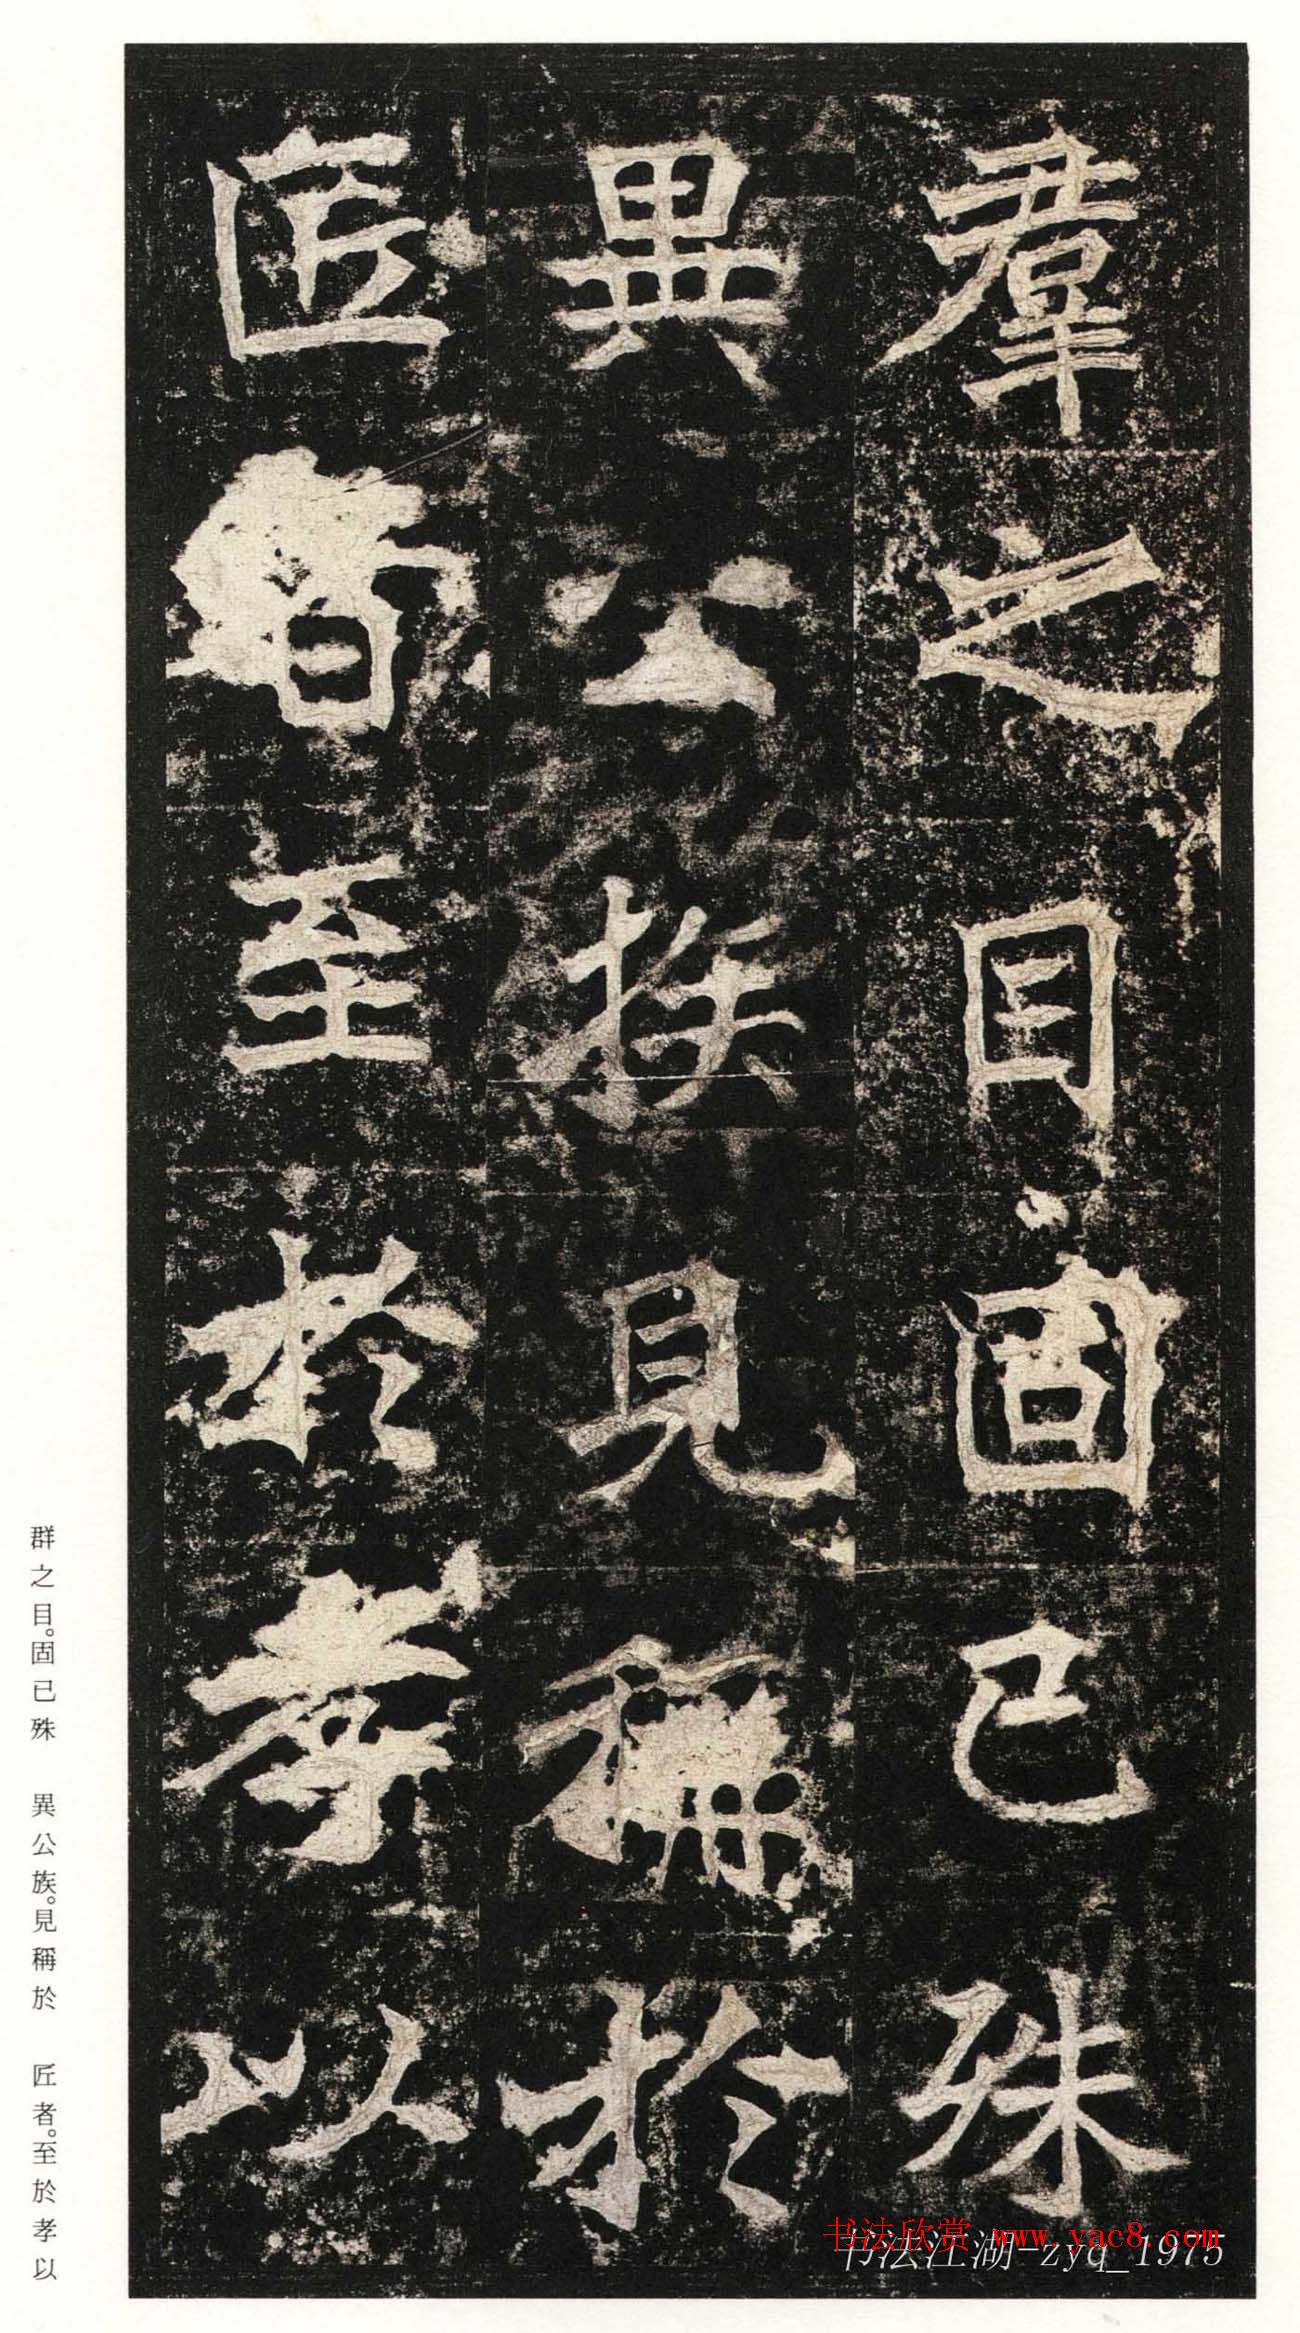 羣之目固已殊
異公族見稱於
匠者至於孝以
群之目。固已殊 異公族。見稱於 匠者。至於孝以
书法欣赏 www.yac8.com
书法江湖-zyq_1975